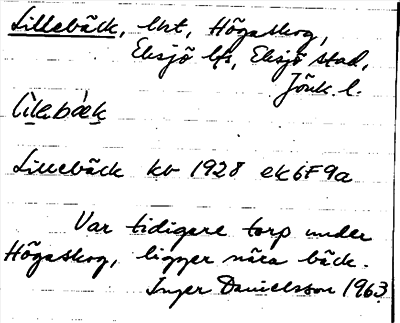 Lillebäck, lht, Högaskog,
Eksjö lfs, Eksjö stad,
Jönk. l.
Lillebäck kv 1928 ek 6F9a
Var tidigare torp under
Högaskog, ligger nära bäck.
Inger Danielsson 1963